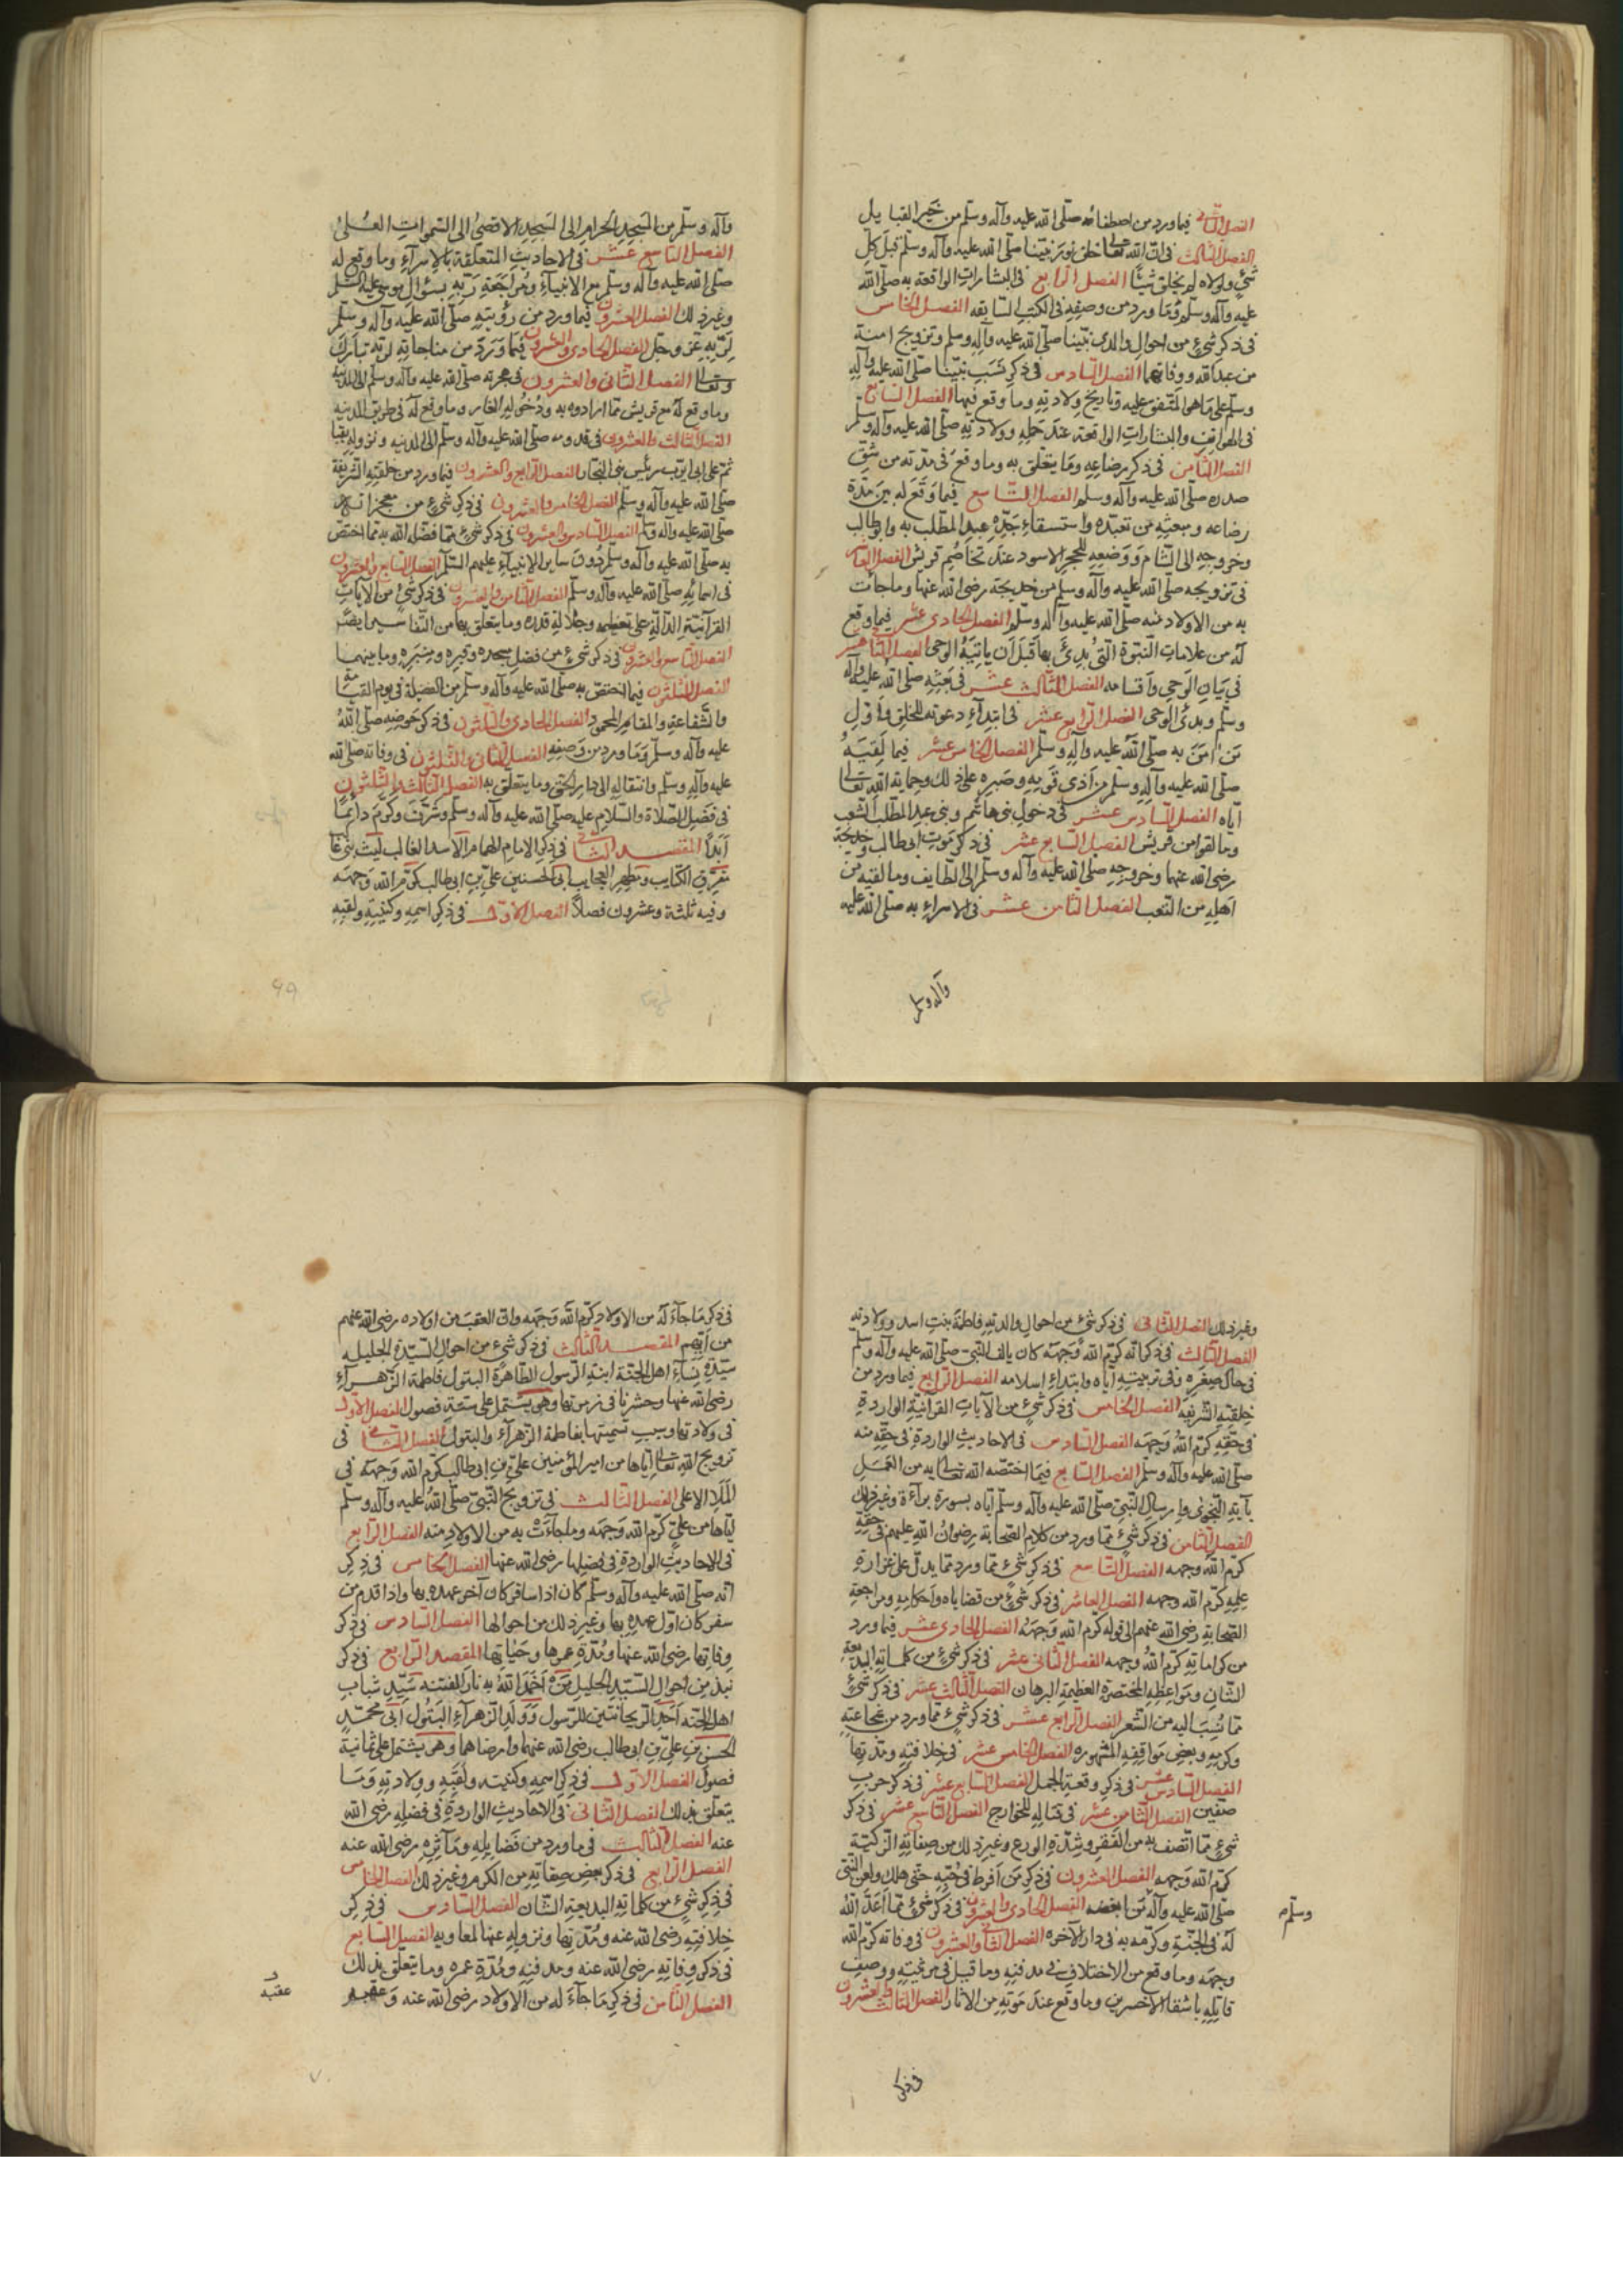 الفصل الثاني فيما ورد من اصطفائه صلى الله عليه وآله وسلم من خير القبايل
الفصل الثالث في ان الله تعالى خلق نور نبينا صلى الله عليه وآله وسلم قبل كل
شيء ولولاه لم يخلق شيئا الفصل الرابع في البشارات الواقعة به صلى الله
عليه وآله وسلم وما ورد من وصفه في الكتب السابقه الفصل الخامس
في ذكر شيء من احوال والدي نبينا صلى الله عليه وآله وسلم وتزويج امنة
من عبد الله ووفاتهما الفصل السادس في ذكر نسب نبينا صلى الله عليه وآله
وسلم على ما هو المتفق عليه وتاريخ ولادته وما وقع فيها الفصل السابع
في الهواتف والبشارات الواقعة عند حمله وولادته صلى الله عليه وآله وسلم
الفصل الثامن في ذكر رضاعه وما يتعلق به وما وقع في مدته من شق
صدره صلى الله عليه وآله وسلم الفصل التاسع فيما وقع له بين مدة
رضاعه ومبعثه من تعبده واستسقاء بجده عبد المطلب به وابوطالب
وخروجه الى الشام ووضعه للحجر الاسود عند تخاصم قريش الفصل العاشر
في تزويجه صلى الله عليه وآله وسلم من خديجة رضى الله عنها وما جائت
به من الاولاد منه صلى الله عليه وآله وسلم الفصل الحادي عشر فيما وقع
له من علامات النبوة التي بدئ بها قبل ان ياتيه الوحى الفصل الثاني عشر
في بيان الوحي واقسامه الفصل الثالث عشر في بعثه صلى الله عليه وآله
وسلم وبدئ الوحى الفصل الرابع عشر في ابتداء دعوته للخلق واول
من امن به صلى الله عليه وآله وسلم الفصل الخامس عشر فيما لقيه
صلى الله عليه وآله وسلم من اذى قومه وصبره على ذلك وحماية الله تعالى
اياه الفصل السادس عشر في دخول بنى هاشم وبنى عبد المطلب الشعب
وما لقوا من قريش الفصل السابع عشر في ذكر موت ابى طالب وخديجة
رضى الله عنها وخروجه صلى الله عليه وآله وسلم الى الطايف وما لقيه من
اهله من التعب الفصل الثامن عشر في الاسراء به صلى الله عليه
وآله وسلم
وآله وسلم من المسجد الحرام الى المسجد الاقصى الى السموات العلى
الفصل التاسع عشر في الاحاديث المتعلقة بالاسراء وما وقع له
صلى الله عليه وآله وسلم مع الانبياء ومراجعة ربه بسؤال موسى عليه السلم
وغير ذلك الفصل العشرون فيما ورد من رؤيته صلى الله عليه وآله وسلم
لربه عز وجل الفصل الحادى والعشرون فيما ورد من مناجاته لربه تبارك
وتعالى الفصل الثاني والعشرون في هجرته صلى الله عليه وآله وسلم الى المدينة
وما وقع له مع قريش مما ارادوه به ودخوله الغار وما وقع له في طريق المدينه
الفصل الثالث والعشرون في قدومه صلى الله عليه وآله وسلم الى المدينه ونزوله بقبا
ثم على ابى ايوب رئيس بنى النجار الفصل الرابع والعشرون فيما ورد من خلقته الشريفة
صلى الله عليه وآله وسلم الفصل الخامس والعشرون في ذكر شيء من معجزاته
صلى الله عليه وآله وسلم الفصل السادس والعشرون في ذكر شيء مما فضله الله به مما اختص
به صلى الله عليه وآله وسلم دون ساير الانبياء عليهم السلم الفصل السابع والعشرون
في اسمائه صلى الله عليه وآله وسلم الفصل الثامن والعشرون في ذكر شيء من الآيات
القرآنية الدالة على تعظيمه وجلالة قدره وما يتعلق بها من التفاسير
الفصل التاسع والعشرون في ذكر شيء من فضل مسجده وقبره ومنبره وما بينهما
الفصل الثلثون فيما اختص به صلى الله عليه وآله وسلم من الفضيلة في يوم القيامة
والشفاعة والمقام المحمود الفصل الحادى والثلثون في ذكر حوضه صلى الله
عليه وآله وسلم وما ورد من وصفه الفصل الثاني والثلثون في وفاته صلى الله
عليه وآله وسلم وانتقاله الى دار الحق وما يتعلق به الفصل الثالث والثلثون
في فضل الصلاة والسلام عليه صلى الله عليه وآله وسلم وشرف وكرم دائما
ابدا المقصد الثاني في ذكر الامام الهمام الاسد الغالب ليث بنى غالب
مفرق الكتايب ومظهر العجايب ابى الحسنين علي بن ابى طالب كرم الله وجهه
وفيه ثلثة وعشرون فصلا الفصل الاول في ذكر اسمه وكنيته ولقبه
٦٩
وغير ذلك الفصل الثاني في ذكر شيء من احوال والدته فاطمة بنت اسد وولادته
الفصل الثالث في ذكر انه كرم الله وجهه كان يالف النبي صلى الله عليه وآله وسلم
في حال صغره وفي تربيته اياه وابتداء اسلامه الفصل الرابع فيما ورد من
خلقته الشريفه الفصل الخامس في ذكر شيء من الآيات القرآنية الواردة
في حقه كرم الله وجهه الفصل السادس في الاحاديث الواردة في حقه منه
صلى الله عليه وآله وسلم الفصل السابع فيما اختصه الله تعالى به من العمل
بآية النجوى وارسال النبي صلى الله عليه وآله وسلم اياه بسورة براءة وغير ذلك
الفصل الثامن في ذكر شيء مما ورد من كلام الصحابة رضوان الله عليهم في حقه
كرم الله وجهه الفصل التاسع في ذكر شيء مما ورد مما يدل على غزارة
علمه كرم الله وجهه الفصل العاشر في ذكر شيء من قضاياه واحكامه ومراجعة
الصحابة رضى الله عنهم الى قوله كرم الله وجهه الفصل الحادى عشر فيما ورد
من كراماته كرم الله وجهه الفصل الثاني عشر في ذكر شيء من كلماته البديعة
الشان ومواعظه المختصرة العظيمة البرهان الفصل الثالث عشر في ذكر شيء
مما نسب اليه من الشعر الفصل الرابع عشر في ذكر شيء مما ورد من شجاعته
وكرمه وبعض مواقفه المشهوره الفصل الخامس عشر في خلافته ومدتها
الفصل السادس عشر في ذكر وقعة الجمل الفصل السابع عشر في ذكر حرب
صفين الفصل الثامن عشر في قتاله للخوارج الفصل التاسع عشر في ذكر
شيء مما اتصف به من الفقر وشدة الورع وغير ذلك من صفاته الزكية
كرم الله وجهه الفصل العشرون في ذكر من افرط في حبه حتى هلك ولعن النبي
صلى الله عليه وآله من ابغضه الفصل الحادى والعشرون في ذكر شيء مما اعد الله
وسلم
له في الجنة وكرمه به في دار الآخره الفصل الثاني والعشرون في وفاته كرم الله
وجهه وما وقع من الاختلاف في مدفنه وما قيل في مرثيته ووصف
قاتله باشقا الاخرين وما وقع عند موته من الاثار الفصل الثالث والعشرون
في ذكر
في ذكر ما جاء له من الاولاد كرم الله وجهه وان العقب من اولاده رضى الله عنهم
من ايهم المقصد الثالث في ذكر شيء من احوال السيدة الجليله
سيدة نساء اهل الجنة ابنة الرسول الطاهرة البتول فاطمة الزهراء
رضى الله عنها وحشرنا في زمرتها وهى يشتمل على ستة فصول الفصل الاول
في ولادتها وسبب تسميتها بفاطمة الزهراء والبتول الفصل الثاني في
تزويج الله تعالى اياها من امير المؤمنين علي بن ابى طالب كرم الله وجهه في
الملا الاعلى الفصل الثالث في تزويج النبي صلى الله عليه وآله وسلم
اياها من علي كرم الله وجهه وما جاءت به من الاولاد منه الفصل الرابع
في الاحاديث الواردة في فضلها رضى الله عنها الفصل الخامس في ذكر
انه صلى الله عليه وآله وسلم كان اذا سافر كان آخر عهده بها واذا قدم من
سفر كان اول عهده بها وغير ذلك من احوالها الفصل السادس في ذكر
وفاتها رضى الله عنها ومدة عمرها وحياتها المقصد الرابع في ذكر
نبذ من احوال السيد الجليل من اخمد الله به نار الفتنه سيد شباب
اهل الجنه احد الريحانتين للرسول وولد الزهراء البتول ابى محمد
الحسن بن علي بن ابى طالب رضى الله عنهما وارضاهما وهى يشتمل على ثمانية
فصول الفصل الاول في ذكر اسمه وكنيته ولقبه وولادته وما
يتعلق بذلك الفصل الثاني في الاحاديث الواردة في فضله رضى الله
عنه الفصل الثالث في ما ورد من فضايله ومآثره رضى الله عنه
الفصل الرابع في ذكر بعض صفاته من الكرم وغير ذلك الفصل الخامس
في ذكر شيء من كلماته البديعة الشان الفصل السادس في ذكر
خلافته رضى الله عنه ومدتها ونزوله عنها لمعاويه الفصل السابع
في ذكر وفاته رضى الله عنه ومدفنه ومدة عمره وما يتعلق بذلك
الفصل الثامن في ذكر ما جاء له من الاولاد رضى الله عنه وعقبه
عقبه
٧٠